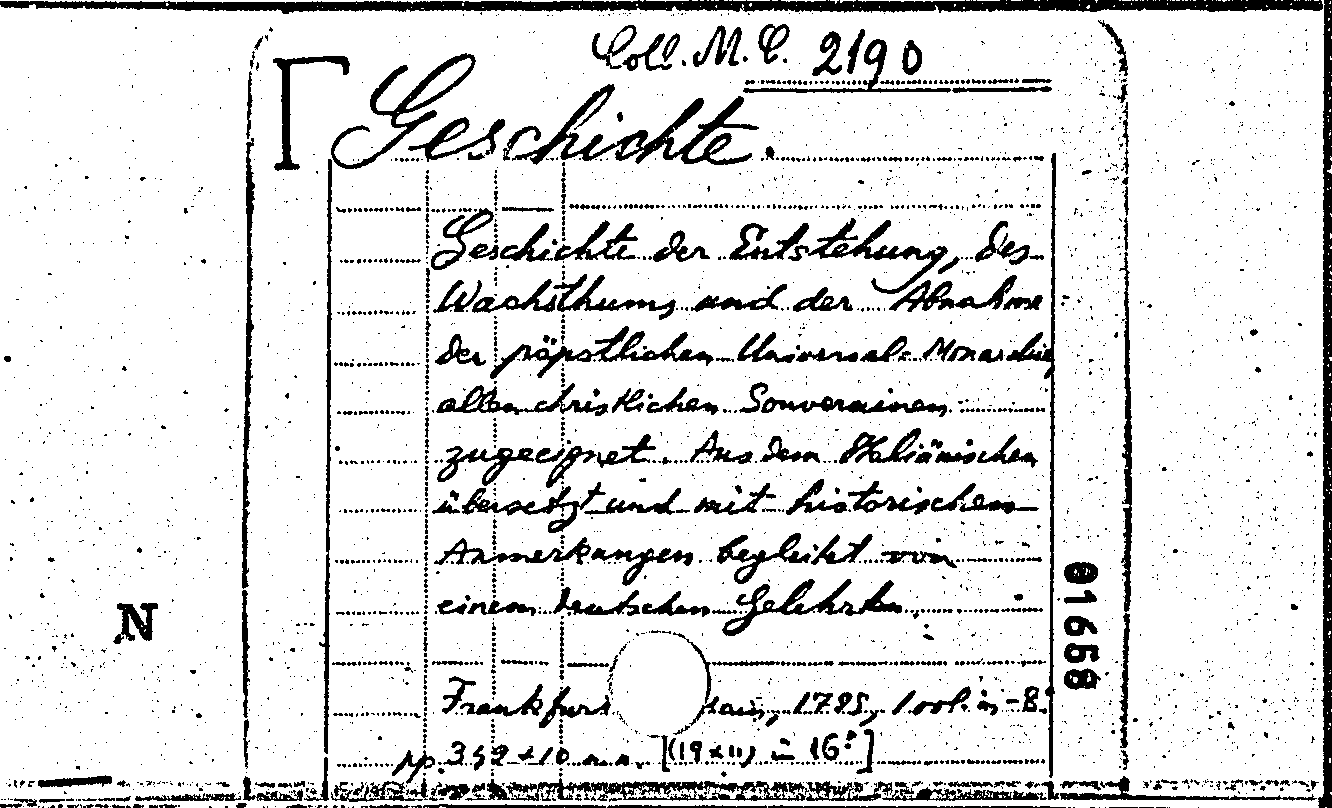 Coll. M. C. 2190
Geschichte.
Geschichte der Entstehung, des
Wachsthums und der Abnahme
der päpstlichen Universal-Monarchie
allen christlichen Souverainen
zugeeignet. Aus dem Italiänischen
übersetzt und mit historischen
Anmerkungen begleitet von
einem deutschen Gelehrten.
01658
N
Frankfurt Main, 1795, 1 vol. in-8.°
pp. + 10 n. n. [(19 x 11) in 16°]